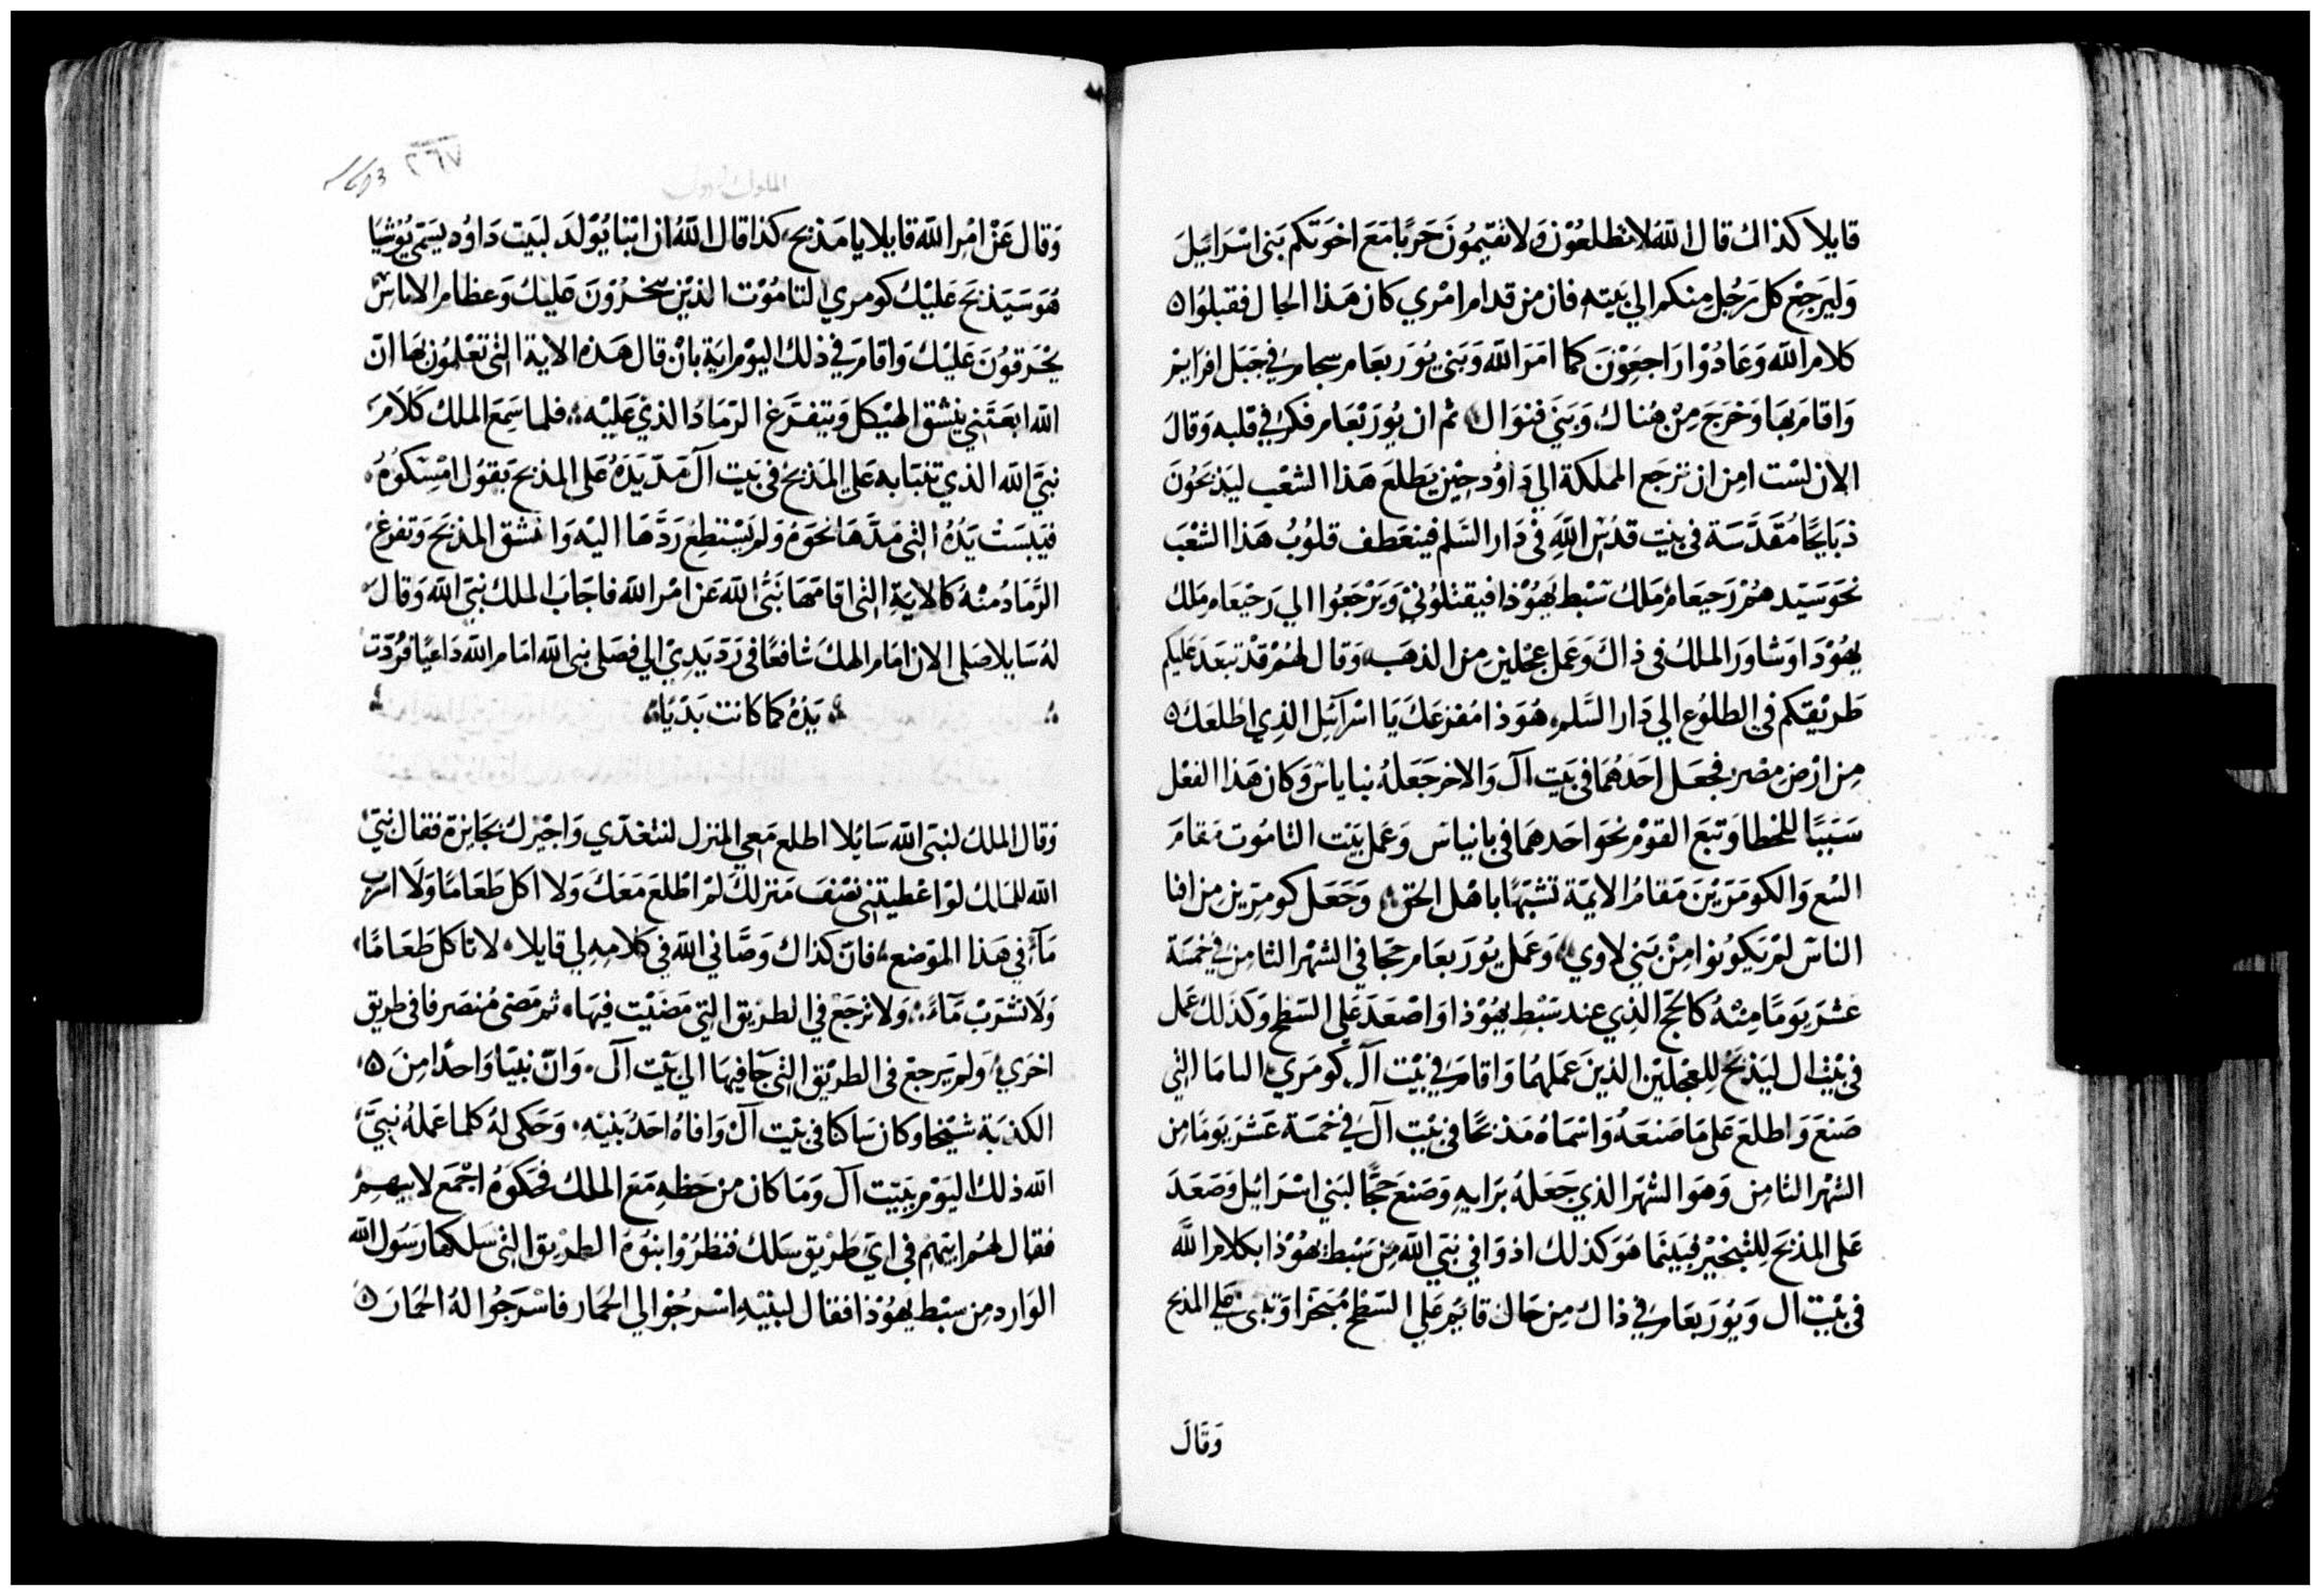 قايلا كذاك قال الله لا تطلعُوْن وَلا تقيْمُونَ حَربًا مَعَ اخوَتكم بَنى اسْرَايَيلَ
وَليرَجِعْ كل رَجُل منكم الي بَيته فان من قدام امْري كان هَذا الحال فقبلوُا ٥
كلام الله وَعَادُوْا رَاجعِوْنَ كما امَرَ الله وَبَنى يُوَربعَام سجام في جَبَل افرَايم
وَاقامَ بهَا وَخرَجَ مِنْ هُناك وَبَنيَ فنوَال ثم ان يُورَبْعَام فكر في قلبه وَقالَ
الان لسْت امِن ان ترجَع المملكة الي دَاوُد حِيْن يَطلعَ هَذا الشعْب ليَذبَحُونَ
ذبَايحًا مُقدَّسَة فى بيْت قدْس اللهِ فى دَار السَّلم فينعَطف قلوُبُ هَذا الشعْبَ
نحَوَ سَيّدهمْ رَحيعَامُ مَلك سَبْط يَهُوْذا فيقتلوُنيْ وَيَرْجعُوا الي رَحْيعَام مَلك
يهُوْدَا وَشاوَرَ الملكُ فى ذاكَ وَعَمل عجْلين من الذهَب وَقال لهُمْ قدْ تبعَدَ عليكم
طَريْقكم في الطلوُع الي دَار السَّلم هُوَذا مُفزعَكَ يَا اسْرَآئِل الذي اطْلعَك ٥
مِن ارْض مِصْر فجعَل احَدهُمَا فى بَيت آل وَالاخر جَعَلهُ بنا ياس وَكان هَذا الفعْل
سَببًا للخطا وَتبعَ القوْم نحَو احَدهمَا فى بانيَاس وَعَمل بَيَت التامُوت مقامَ
البيْع وَالكومَرَيْنَ مَقامُ الايمّة تشبّهًا باهْل الحق وَجَعَل كومرَين من افنا
الناسَ لمْ يَكوُنوا مِنْ بَني لاوي وَعَمل يُوَربعَام حجّا في الشهْر الثامن في خمسَة
عَشرَ يَومًا مِنْهُ كالحجّ الذي عند سَبْط يهُوْذا وَاصْعَدَ عَلى السَّطح وَكذلك عَمل
فى بيْت ال ليَذبَحْ للعِجْليْن الذينَ عَملهُمَا وَاقامَ في بيْت آل كومَري الباما التي
صَنعَ وَاطلعَ عَلى مَا صَنعَهُ وَاسْمَاهُ مَذبحًا فى بيْت آل في خمسَة عَشرَ يَومًا مِن
الشهْر الثامِن وَهوَ الشهرَ الذي جَعَلهُ برَايهِ وَصَنعَ حجًّا لبَني اسْرَائيل وَصَعَدَ
عَلى المذبَح لِلتبْخيْر فبَينمَا هوَ كذلك اذ وَافي نبَيّ الله مِن سَبْط يَهُوْذا بكلام اللَّه
فى بيْت ال وَيُورَبعَام في ذاك مِن حَال قايمِ عَلي السَّطح مُبَخرًا وَتنبى عَلي المذبح
وَقَالَ
٢٦٧
الملوك الاول
وَقال عَنْ امْر الله قايلا يا مَذبح كذا قال اللهُ ان ابْنا يُوْلدَ لبَيت دَاوُد يسَمّى يُوْشيَا
هُوَ سَيَذبَح عَليْك كومري التامُوْت الذيْن يبخرُوْنَ عَليْكَ وَعظام الاناسَ
يحْرَقوُنَ عَليْكَ وَاقامَ في ذلك اليوْم ايَة بانْ قال هَذه الاية التى تعْلموُن بهَا انّ
الله ابعَثني ينشق الهيْكل وَيتفرّغ الرّمَادُ الذيْ عَليْه فلما سَمِعَ الملك كَلامَ
نبيَّ الله الذي تنبَا به عَلي المَذبحْ فى بَيت آل مَدّ يَدَهُ عَلى المذبحَ بقوُل امْسِكوُهُ
فيَبسَتْ يَدُهُ التي مَدَّهَا نحوَهُ وَلم يَسْتطِعْ رَدَّهَا اليْه وَانشق المذبَحَ وَتفرغ
الرَّمَادُ منْهُ كالايَةِ التى اقامَهَا نَبيُّ الله عَن امْر الله فاجَابَ الملك نبَيّ الله وَقالَ
لهُ سَايلا صَلى الان امَام الهكَ شافعًا فى رَدّ يَدِيْ الي فصَلى نبى الله امَام الله دَاعيًا فرُدّتْ
يَدُهُ كما كانت بَدْيًا
وَقال الملك لنبَى الله سَايْلا اطلع مَعِي المنزل لنتغدّي وَاجيْزك بجَايزة فقال نبَيّ
الله للملك لوْ اعْطيتني نصْفَ مَنزلكَ لمْ اطْلعَ مَعَكَ وَلا اكل طَعَامًا وَلا اشرب
مَآءً في هَذا الموْضع فانّ كذاك وَصَّاني الله في كلامِهِ لي قايلا لا تاكل طَعَامًا
وَلا تشرَبْ مَآءً وَلا ترجَعْ في الطرِيق التي مَضيْت فيهَا ثم مَضى مُنصَرفا في طريق
اخرَي وَلم يَرجعْ فى الطريْق التى جَا فيهَا الي بيْت آل وَانّ نبيّا وَاحدًا مِنَ ٥
الكذبَة شيْخا وكان سَاكنا فى بيْت آل وَافاهُ احَدُ بَنيْهِ وَحَكى لهُ كلما عَملهُ نبيَّ
الله ذلك اليَوْم ببَيت آل وَمَا كان من حَظهِ مَعَ الملك فحَكوَهُ اجْمَع لابيهِمْ
فقال لهُم ابيهمْ فى ايّ طَريْق سَلك فنظرُوْا بَنوُهُ الطريْق التى سَلكها رَسُول الله
الوَارد من سبْط يَهُوْذا فقال لبنيْهِ اسْرجُوْا لي الحمار فاسْرَجُوا لهُ الحمَارَ ٥